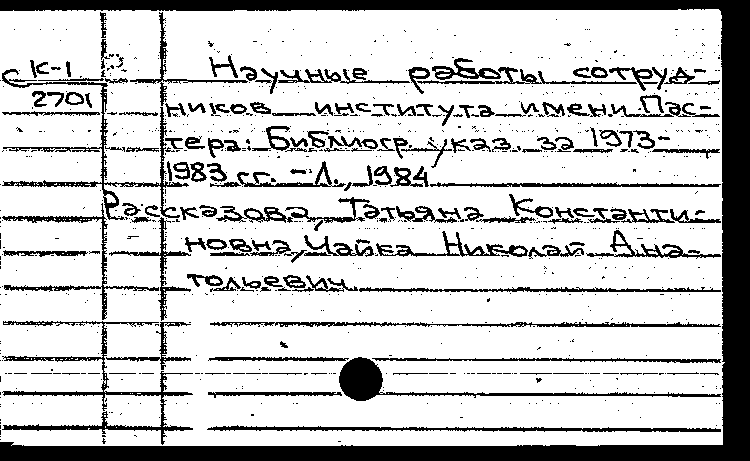 С К-1
2701
Научные работы сотруд-
ников института имени Пас-
тера: Библиогр. указ. за 1973-
1983 гг. - Л., 1984
Рассказова, Татьяна Константи-
новна, Чайка Николай Ана-
тольевич